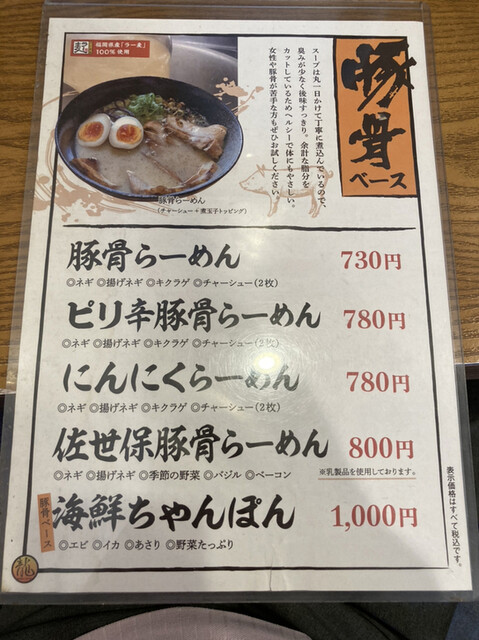 豚骨
ベース
スープは丸一日かけて丁寧に煮込んでいるので、
臭みが少なく後味すっきり。余計な脂分を
カットしているためヘルシーで体にもやさしい。
女性や豚骨が苦手な方もぜひお試しください。
麺
福岡県産「ラー麦」
100%使用
豚骨らーめん
(チャーシュー+煮玉子トッピング)
豚骨らーめん 730円
◎ネギ ◎揚げネギ ◎キクラゲ ◎チャーシュー(2枚)
ピリ辛豚骨らーめん 780円
◎ネギ ◎揚げネギ ◎キクラゲ ◎チャーシュー(2枚)
にんにくらーめん 780円
◎ネギ ◎揚げネギ ◎キクラゲ ◎チャーシュー(2枚)
佐世保豚骨らーめん 800円
◎ネギ ◎揚げネギ ◎季節の野菜 ◎バジル ◎ベーコン
※乳製品を使用しております。
豚骨ベース
海鮮ちゃんぽん 1,000円
◎エビ ◎イカ ◎あさり ◎野菜たっぷり
表示価格はすべて税込です。
龍